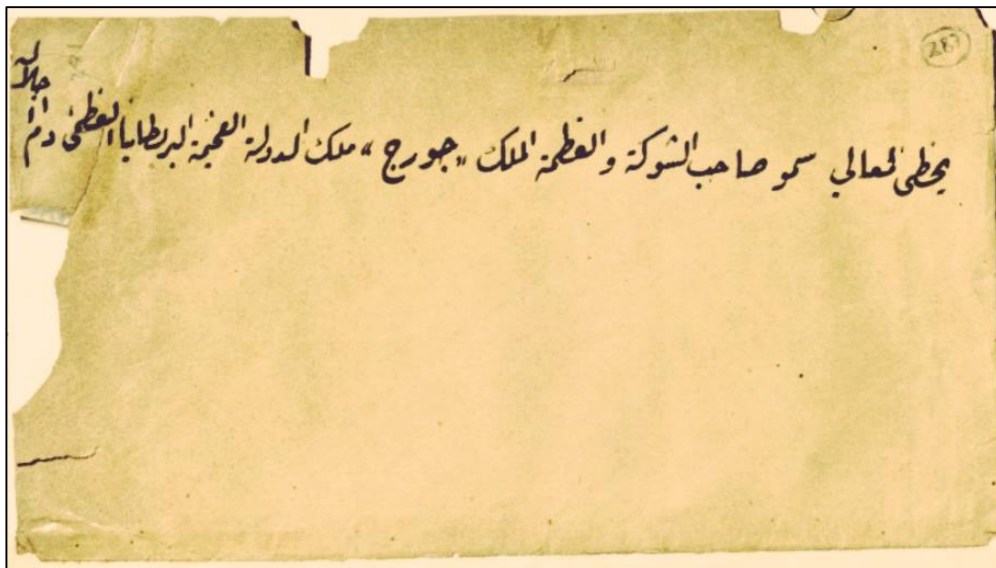 287
يحظى لمعالي سمو صاحب الشوكة والعظمة الملك "جورج" ملك الدولة الفخيمة البريطانيا العظمى دام اجلاله